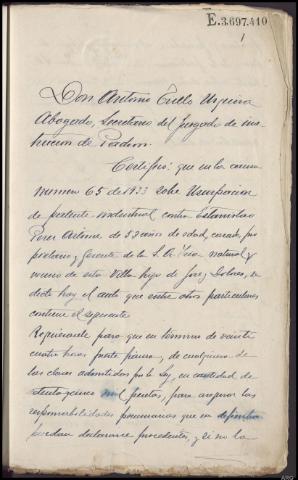 E.3.697.410
1
Don Antonio Tuello Urqueira
Abogado, Secretario del Juzgado de ins-
trucción de Padrón.
Certifico: que en la causa
numero 65 de 1933 sobre Usurpación
de patente industrial contra Estanislao
Perez Artime de 52 años de edad, casado, pro
pietario y Gerente de la S. A. natural y
vecino de esta Villa hijo de Jose y Dolores, se
dictó hoy el auto que entre otros particulares
contiene el siguiente
Requierasele para que en término de veinte
cuatro horas preste fianza, de cualquiera de
las clases admitidas por la ley, en cantidad de
mil pesetas, para asegurar las
responsabilidades pecuniarias que en definitiva
puedan declararse procedentes, y si no la
ARG